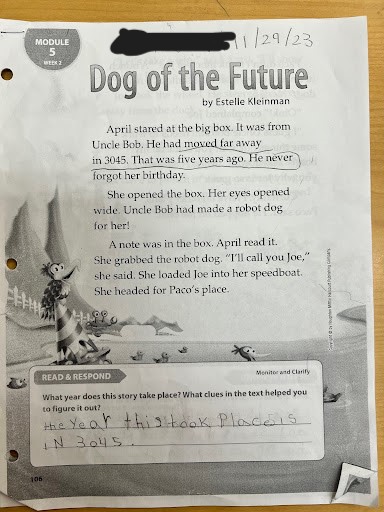 MODULE
5
WEEK 2
11/29/23
Dog of the Future
by Estelle Kleinman
April stared at the big box. It was from
Uncle Bob. He had moved far away
in 3045. That was five years ago. He never
forgot her birthday.
She opened the box. Her eyes opened
wide. Uncle Bob had made a robot dog
for her!
A note was in the box. April read it.
She grabbed the robot dog. “I’ll call you Joe,”
she said. She loaded Joe into her speedboat.
She headed for Paco’s place.
READ & RESPOND
Monitor and Clarify
What year does this story take place? What clues in the text helped you
to figure it out?
the Year this book Place is
IN 3045.
106